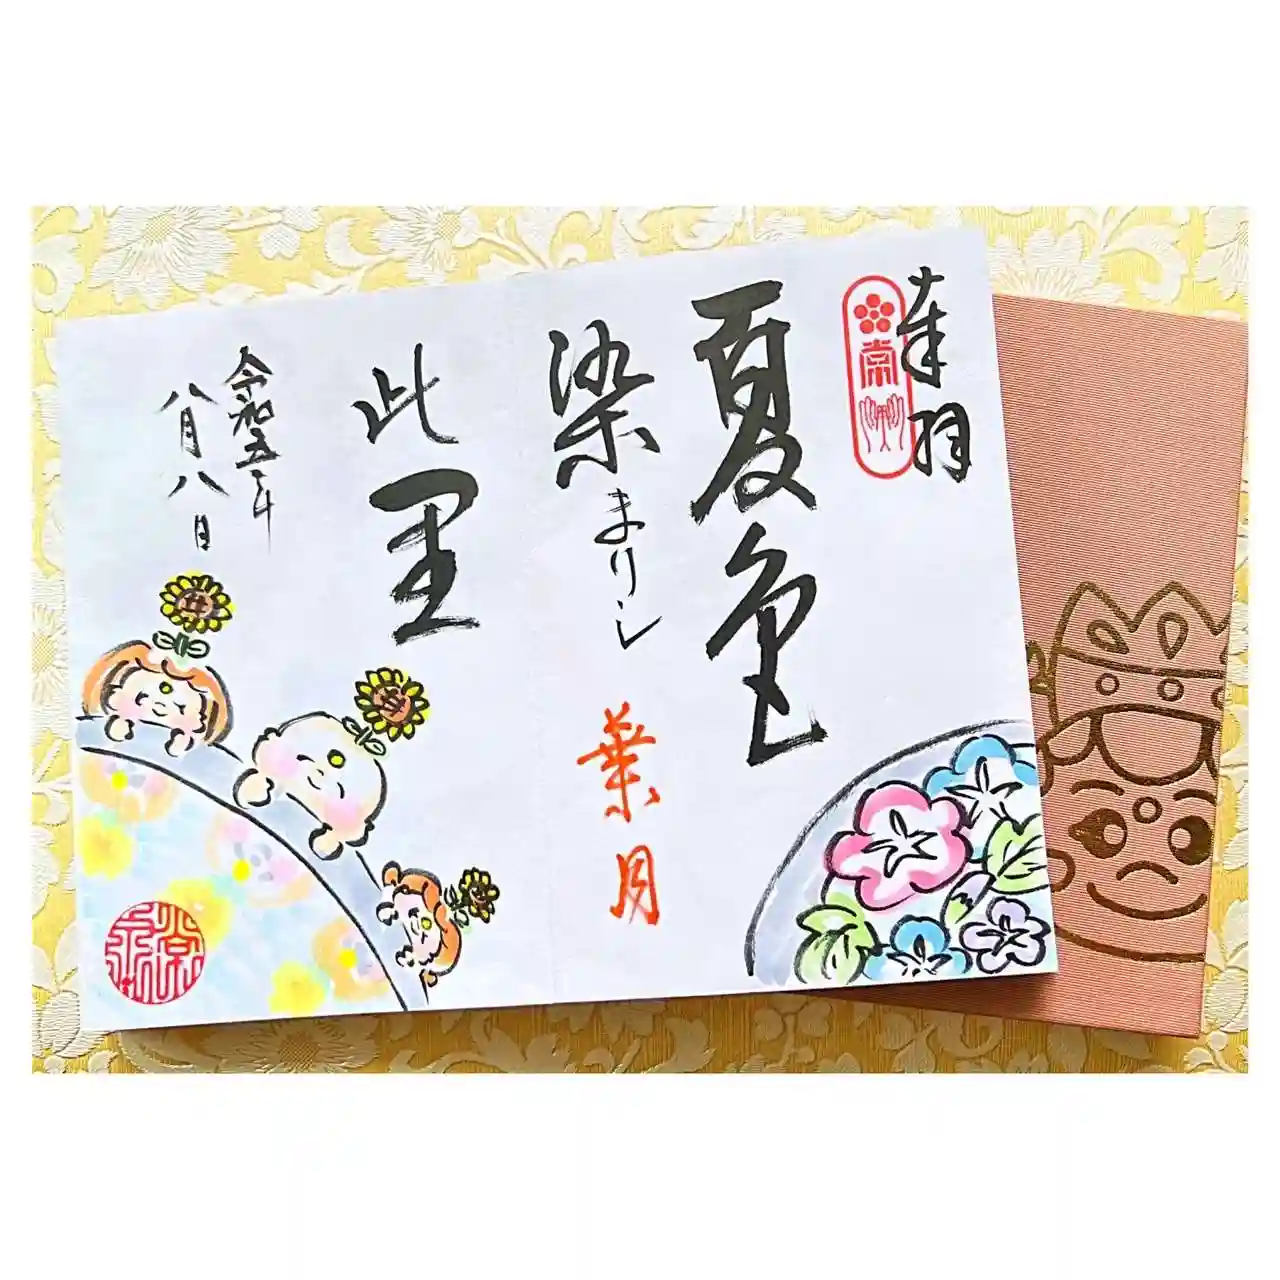 奉拝
夏色
染まりし
葉月
此里
令和五年
八月八日
常